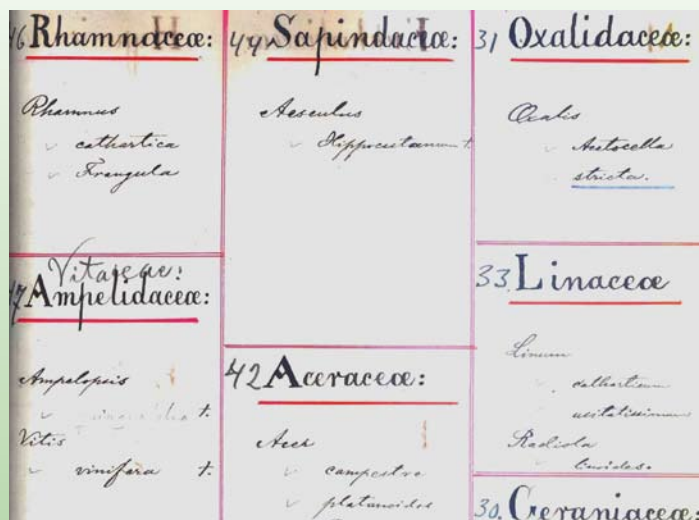 46 Rhamnaceæ:
Rhamnus
cathartica
Frangula
Vitaceae:
47 Ampelidaceæ:
Ampelopsis
t.
Vitis
vinifera t.
44 Sapindaceæ:
Aesculus
Hippocastanum t.
42 Aceraceæ:
Acer
campestre
platanoides
31 Oxalidaceæ:
Oxalis
Acetosella
stricta.
33. Linaceæ
Linum
catharticum
usitatissimum
Radiola
linoides.
30. Geraniaceæ: